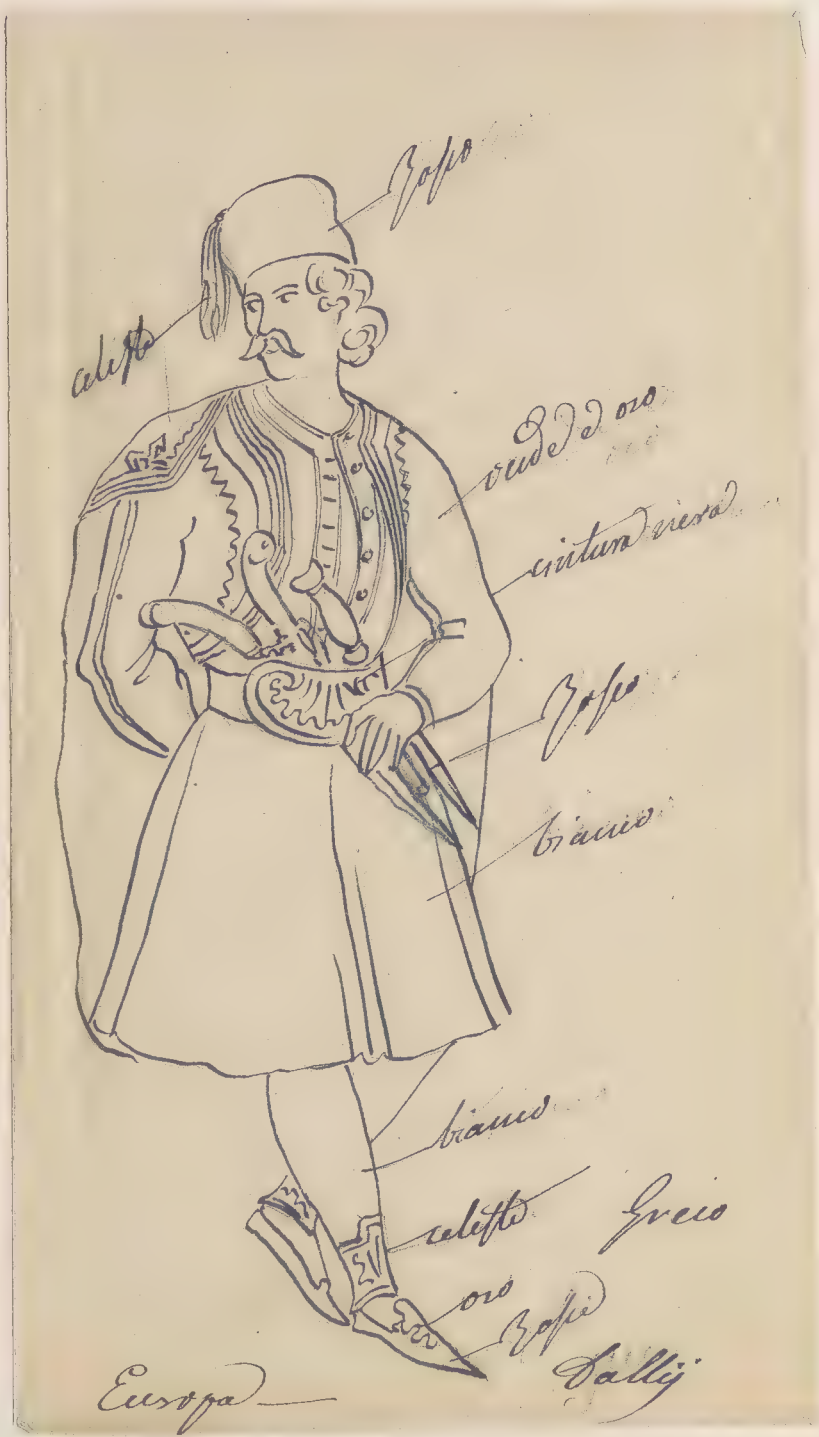 Rosso
celeste
verde e oro
cintura nera
Rosso
bianco
bianco
celeste
Greco
oro
Rosse
Europa